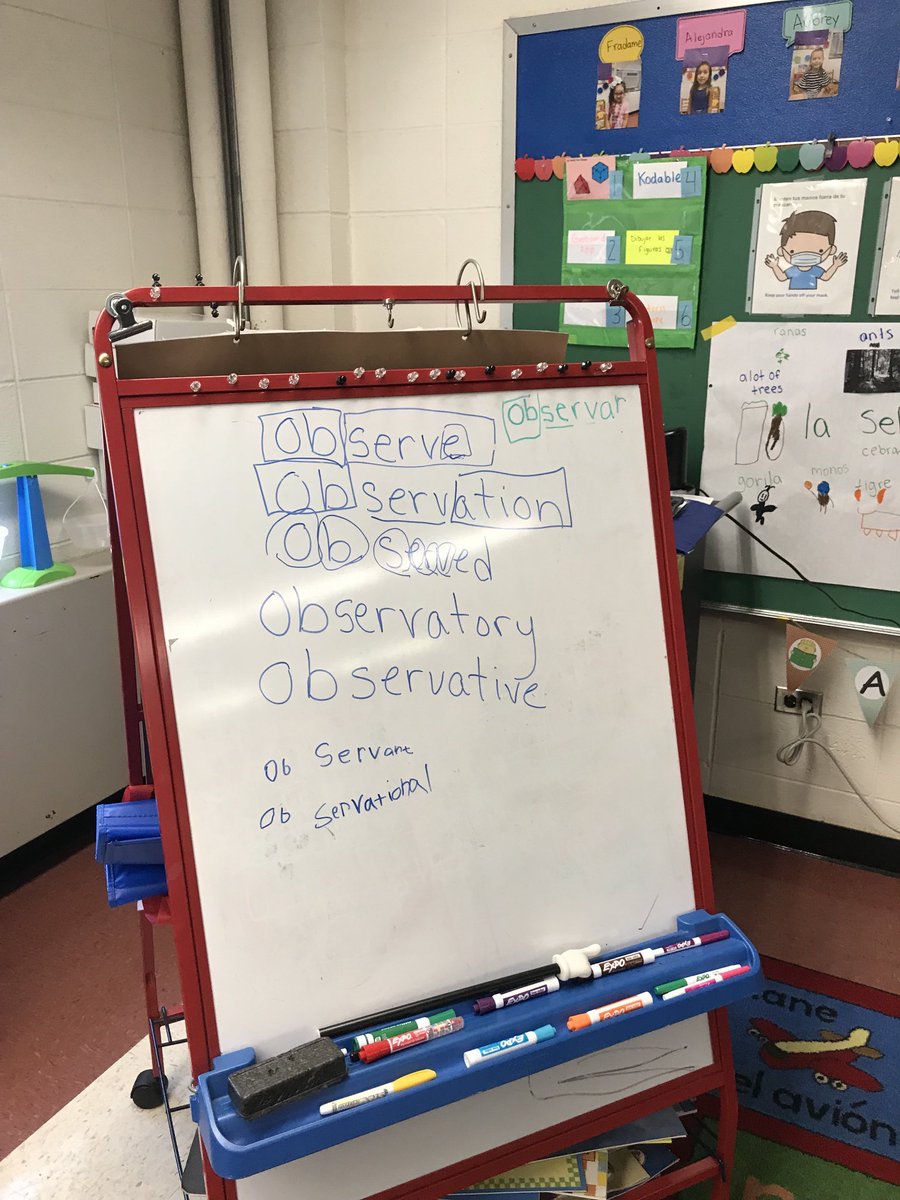 Fradame
Alejandra
Aubrey
1
Kodable
4
2
Dibujar las
figuras
5
3
6
Keep your hands off your mask.
ranas
ants
a lot of
trees
la Sel
cebra
gorila
monos
tigre
Observe
Observar
Observation
Observed
Observatory
Observative
Ob Servant
Ob servational
A
EXPO
EXPO
EXPO
EXPO
EXPO
lane
el avión